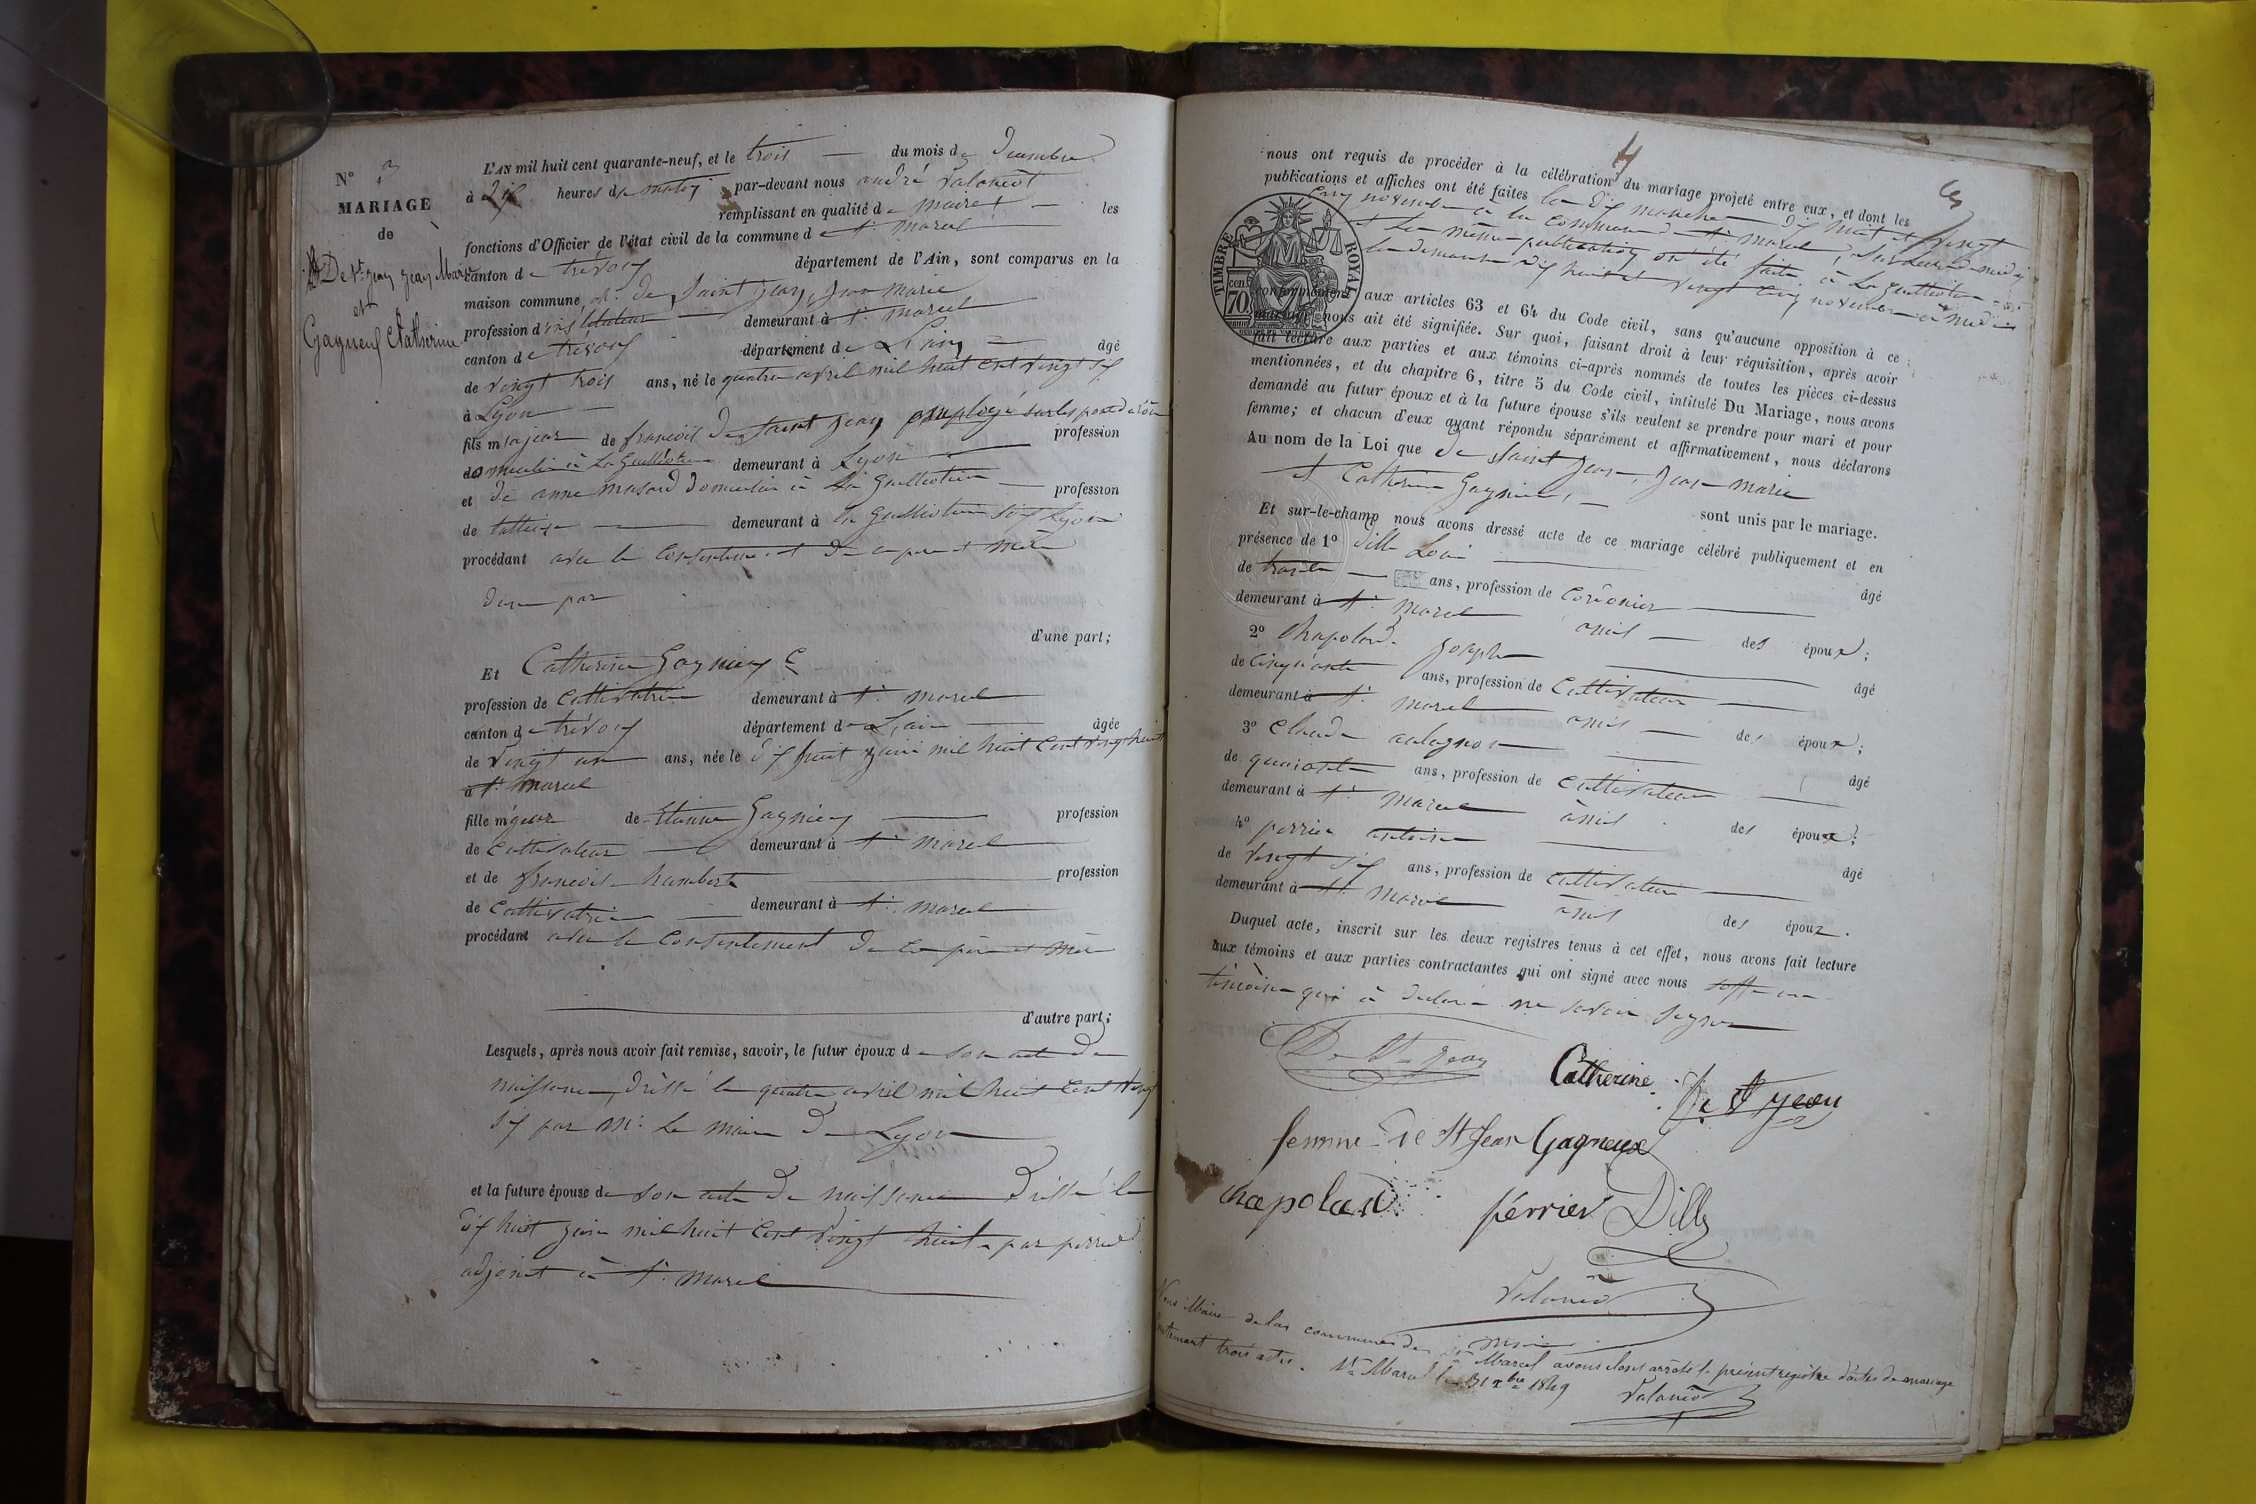 N° 3
MARIAGE
de
De St jean jean Marie
et
Gagneux Catherine
L'AN mil huit cent quarante-neuf, et le trois du mois de decembre
à dix heures du matin par-devant nous andré Valancot
remplissant en qualité de maire les
fonctions d'Officier de l'état civil de la commune de St marcel
canton de trévoux département de l'Ain, sont comparus en la
maison commune de Saint jean, jean marie
profession d'instituteur demeurant à St marcel
canton de trévoux département de L'ain âgé
de vingt trois ans, né le quatre avril mil huit cent vingt six
à Lyon
fils majeur de francois de saint jean employé sur les ponts profession
domicilié à La Guillotière demeurant à Lyon
et de anne domicilié à La Guillotière profession
de demeurant à la Guillotière Lyon
procédant avec le consentement de ces pere et mere
d'une part;
Et Catherine Gagneux
profession de cultivatrice demeurant à St marcel
canton de trévoux département de L'ain âgée
de vingt un ans, née le dix huit juin mil huit cent vingt huit
à St marcel
fille majeur de Etienne Gagneux profession
de cultivateur demeurant à St marcel
et de francoise humbert profession
de cultivatrice demeurant à St marcel
procédant avec le consentement de ces père et mère
d'autre part;
Lesquels, après nous avoir fait remise, savoir, le futur époux de son acte de
naissance, dressé le quatre avril mil huit cent vingt
six par Mr le maire de Lyon
et la future épouse de son acte de naissance dressé le
dix huit juin mil huit cent vingt huit par
adjoint à St marcel
4
nous ont requis de procéder à la célébration du mariage projeté entre eux, et dont les
publications et affiches ont été faites le dix huit et vingt
cinq novembre à la commune de St marcel
et la même publication ont été faite à La Guillotière
le dimanche dix huit et vingt cinq novembre à midi
conformément aux articles 63 et 64 du Code civil, sans qu'aucune opposition à ce
mariage nous ait été signifiée. Sur quoi, faisant droit à leur réquisition, après avoir
fait lecture aux parties et aux témoins ci-après nommés de toutes les pièces ci-dessus
mentionnées, et du chapitre 6, titre 5 du Code civil, intitulé Du Mariage, nous avons
demandé au futur époux et à la future épouse s'ils veulent se prendre pour mari et pour
femme; et chacun d'eux ayant répondu séparément et affirmativement, nous déclarons
Au nom de la Loi que de Saint Jean, Jean marie
et Catherine Gagneux,
sont unis par le mariage.
Et sur-le-champ nous avons dressé acte de ce mariage célébré publiquement et en
présence de 1° Dilly Loui âgé
de trente ans, profession de
demeurant à St marcel amis des époux;
2° Chapoland joseph âgé
de cinquante ans, profession de cultivateur
demeurant à St marcel amis des époux;
3° Claude âgé
de quarante ans, profession de cultivateur
demeurant à St marcel amis des époux;
4° perrier antoine âgé
de vingt six ans, profession de cultivateur
demeurant à St marcel amis des époux.
Duquel acte, inscrit sur les deux registres tenus à cet effet, nous avons fait lecture
aux témoins et aux parties contractantes qui ont signé avec nous
qui a declaré ne savoir signer
TIMBRE ROYAL
70
De St Jean
Catherine De St jean
femme De St Jean Gagneux
Chapoland férrier Dilly
Valancot
maire
Nous Maire de la commune de St Marcel avons clos et arrêté le présent registre d'actes de mariage
contenant trois actes. St Marcel le 31 Xbre 1849
Valancot